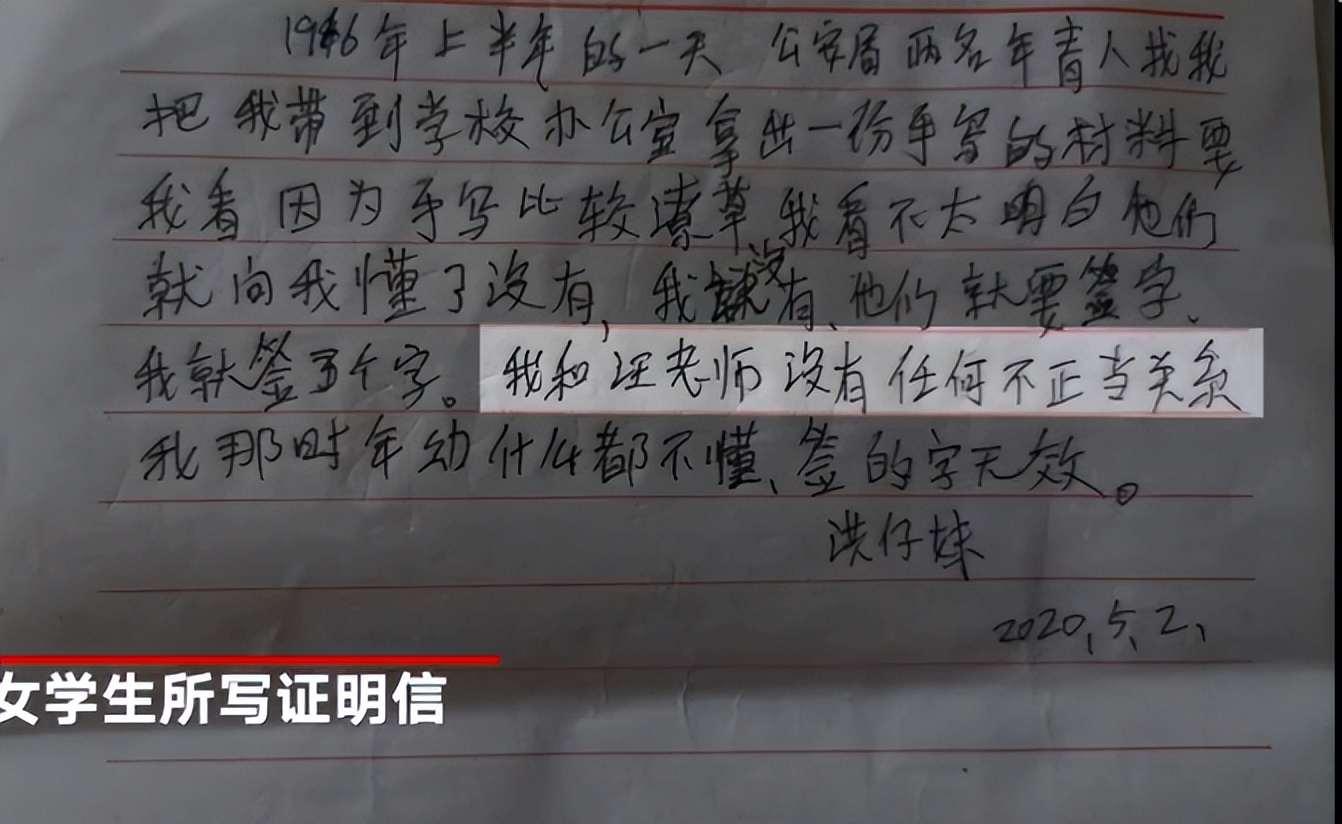 1986年上半年的一天 公安局两名年青人找我
把我带到学校办公室拿出一份手写的材料要
我看因为手写比较潦草、我看不太明白他们
就问我懂了没有,我没有、他们就要签字、
我就签了个字。我和汪老师没有任何不正当关系
我那时年幼什么都不懂、签的字无效。
洪仔妹
2020、5、2、
女学生所写证明信